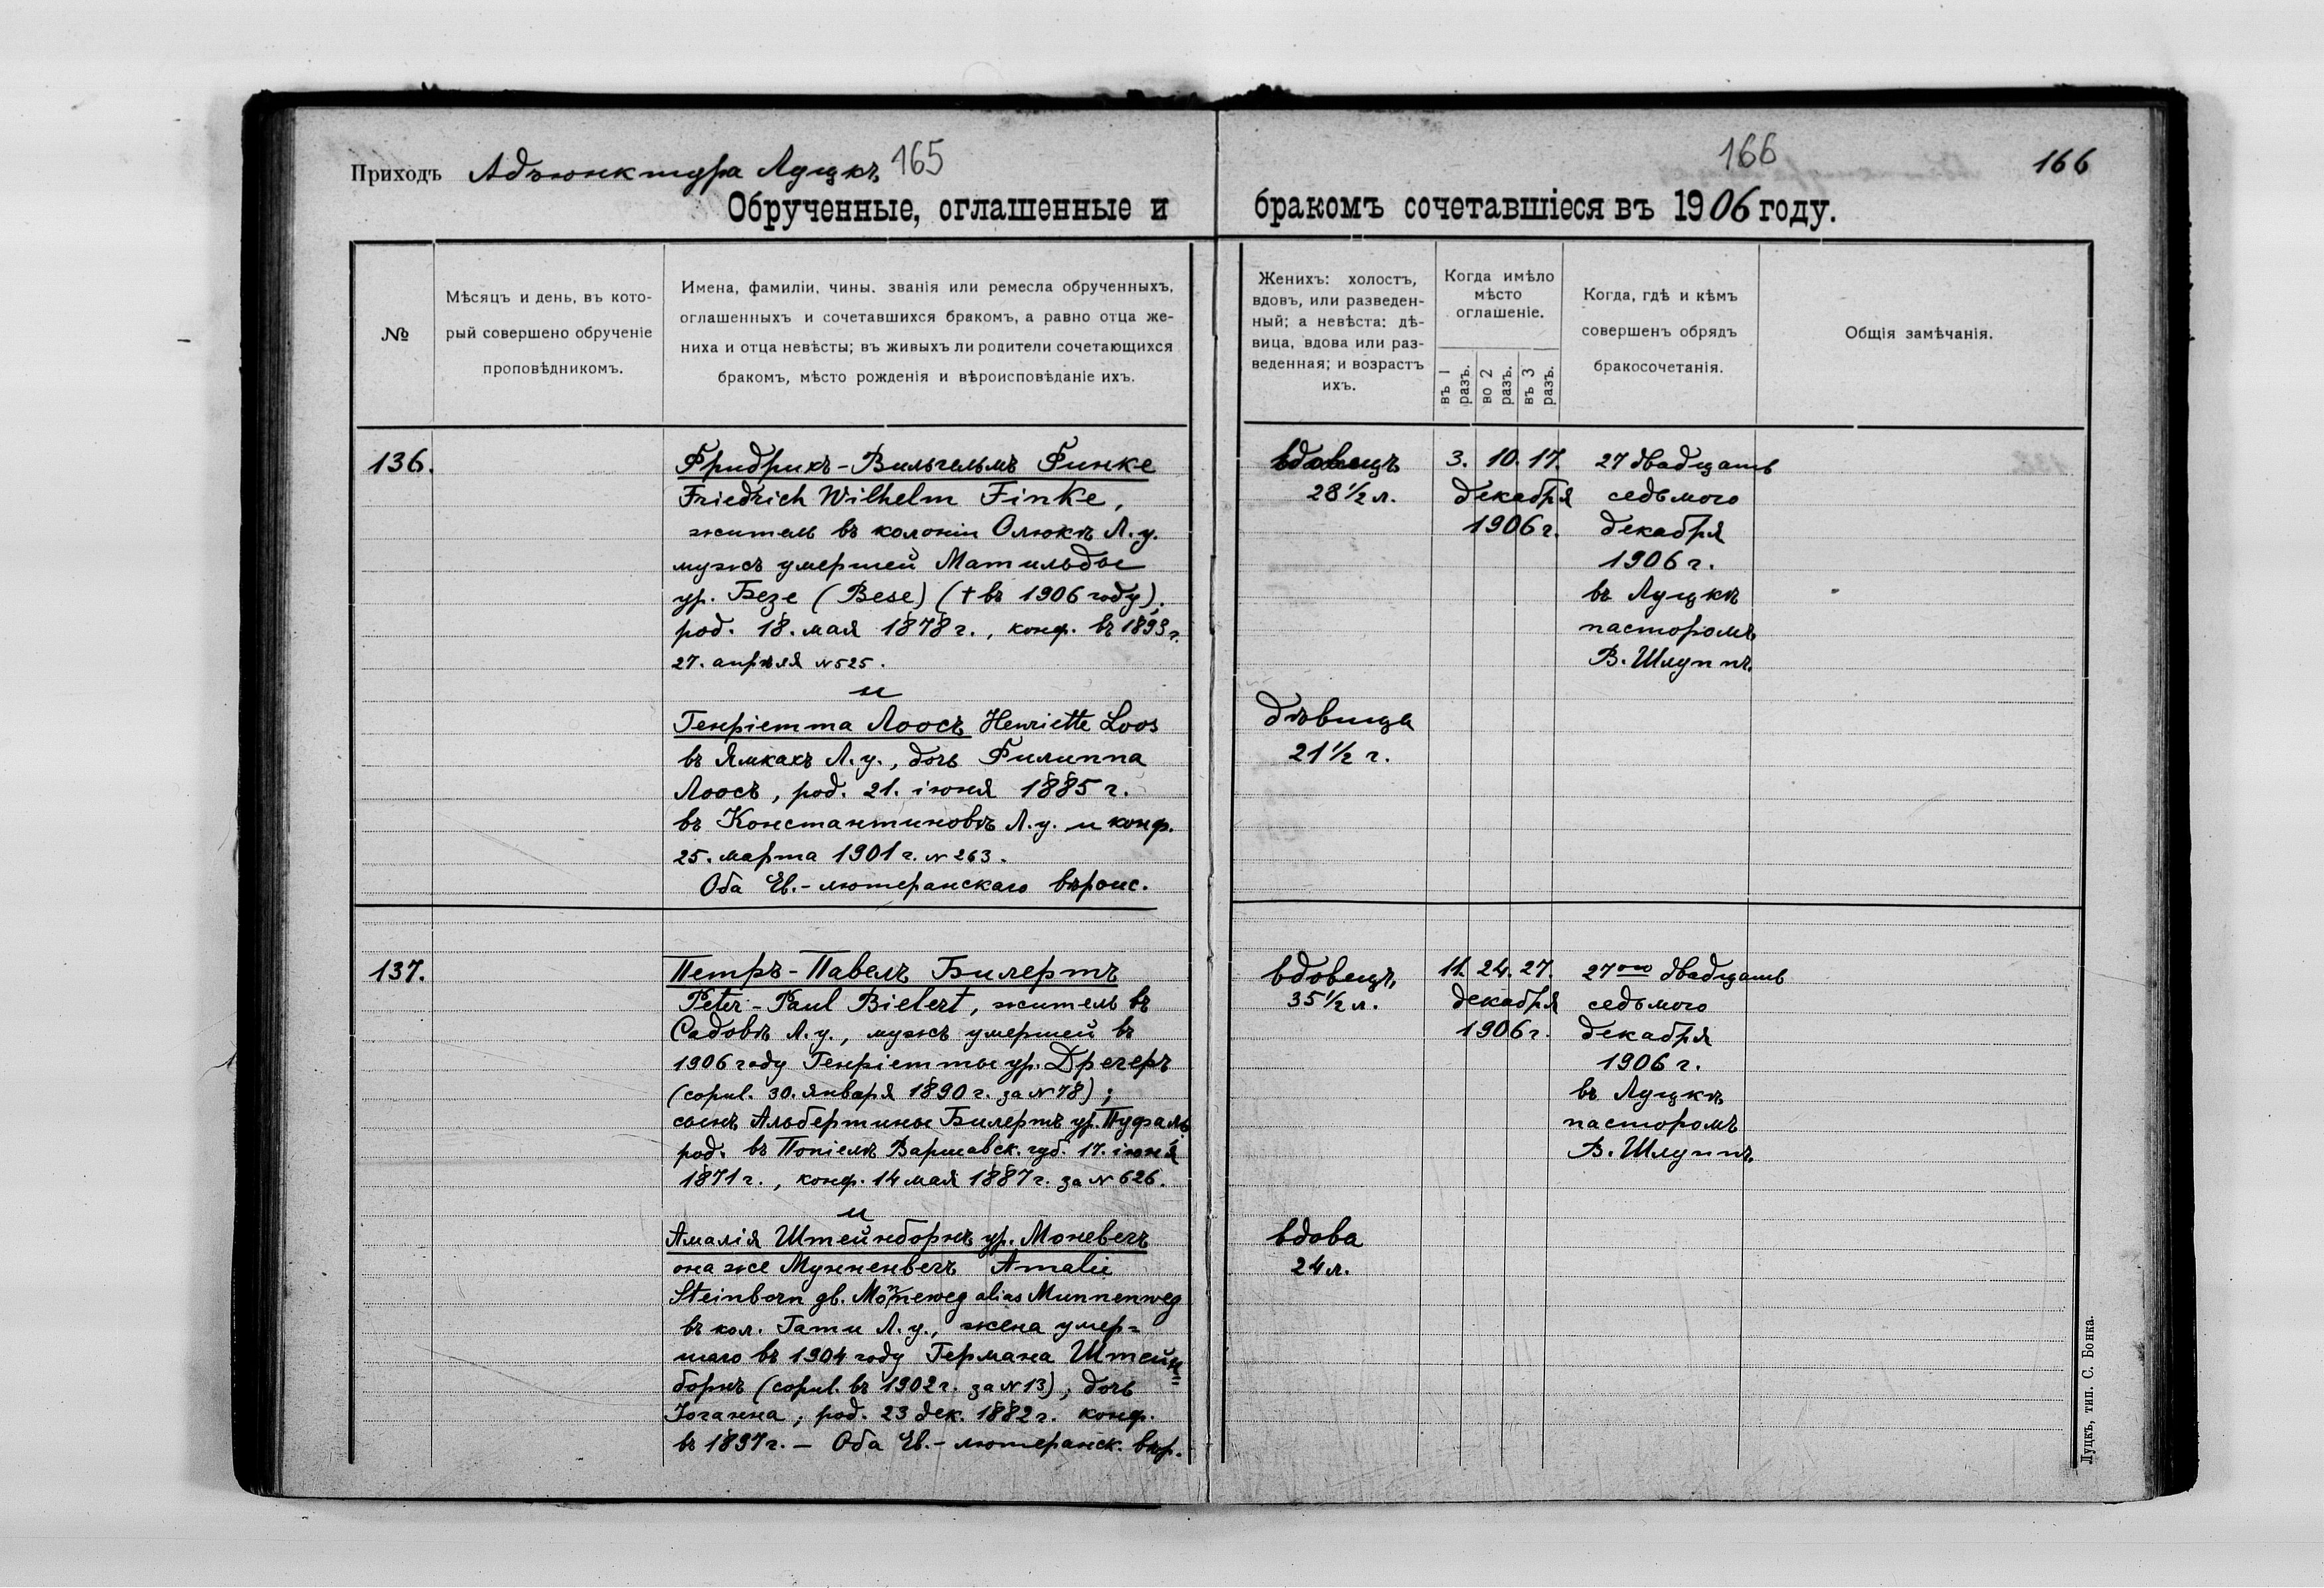 Приходъ Адъюнктура Луцкъ 165
166
166
Обрученные, оглашенные и бракомъ сочетавшіеся въ 1906 году.
№
Мѣсяцъ и день, въ кото-
рый совершено обрученіе
проповѣдникомъ.
Имена, фамиліи, чины, званія или ремесла обрученныхъ,
оглашенныхъ и сочетавшихся бракомъ, а равно отца же-
ниха и отца невѣсты; въ живыхъ ли родители сочетающихся
бракомъ, мѣсто рожденія и вѣроисповѣданіе ихъ.
Женихъ: холостъ,
вдовъ, или разведен-
ный; а невѣста: дѣ-
вица, вдова или раз-
веденная; и возрастъ
ихъ.
Когда имѣло
мѣсто
оглашеніе.
въ 1 разъ.
во 2 разъ.
въ 3 разъ.
Когда, гдѣ и кѣмъ
совершенъ обрядъ
бракосочетанія.
Общія замѣчанія.
136.
Фридрихъ-Вильгельмъ Финке
Friedrich Wilhelm Finke,
житель въ колоніи Олюкѣ Л. у.
мужъ умершей Матильды
ур. Безе (Bese) († въ 1906 году),
род. 18. мая 1878 г., конф. въ 1893 г.
27. апрѣля № 525.
и
Генріетта Лоосъ Henriette Loos
въ Ямкахъ Л. у., дочь Филиппа
Лоосъ, род. 21. іюня 1885 г.
въ Константиновкѣ Л. у. и конф.
25. марта 1901 г. № 263.
Оба Ев.-лютеранскаго вѣроис.
вдовецъ
28 1/2 л.
дѣвица
21 1/2 г.
3. 10. 17.
декабря
1906 г.
27 двадцать
седьмого
декабря
1906 г.
въ Луцкѣ
пасторомъ
В. Шлуппъ.
137.
Петръ-Павелъ Билертъ
Peter-Paul Bielert, житель въ
Садовѣ Л. у., мужъ умершей въ
1906 году Генріетты ур. Дрегеръ
(сопил. 30. января 1890 г. за № 78);
сынъ Альбертины Билертъ ур. Пуфаль
род. въ Попіелѣ Варшавск. губ. 17. іюня
1871 г., конф. 14 мая 1887 г. за № 626.
и
Амалія Штейнборнъ ур. Моневегъ
она же Мунненвегъ Amalie
Steinborn gb. Möneweg alias Munnenweg
въ кол. Гати Л. у., жена умер-
шаго въ 1904 году Германа Штейн=
борнъ (сопил. въ 1902 г. за № 13), дочь
Іоганна, род. 23 дек. 1882 г. конф.
въ 1897 г. – Оба Ев.-лютеранск. вѣр.
вдовецъ,
35 1/2 л.
вдова
24 л.
11. 24. 27.
декабря
1906 г.
27ого двадцать
седьмого
декабря
1906 г.
въ Луцкѣ
пасторомъ
В. Шлуппъ.
Луцкъ, тип. С. Бонка.